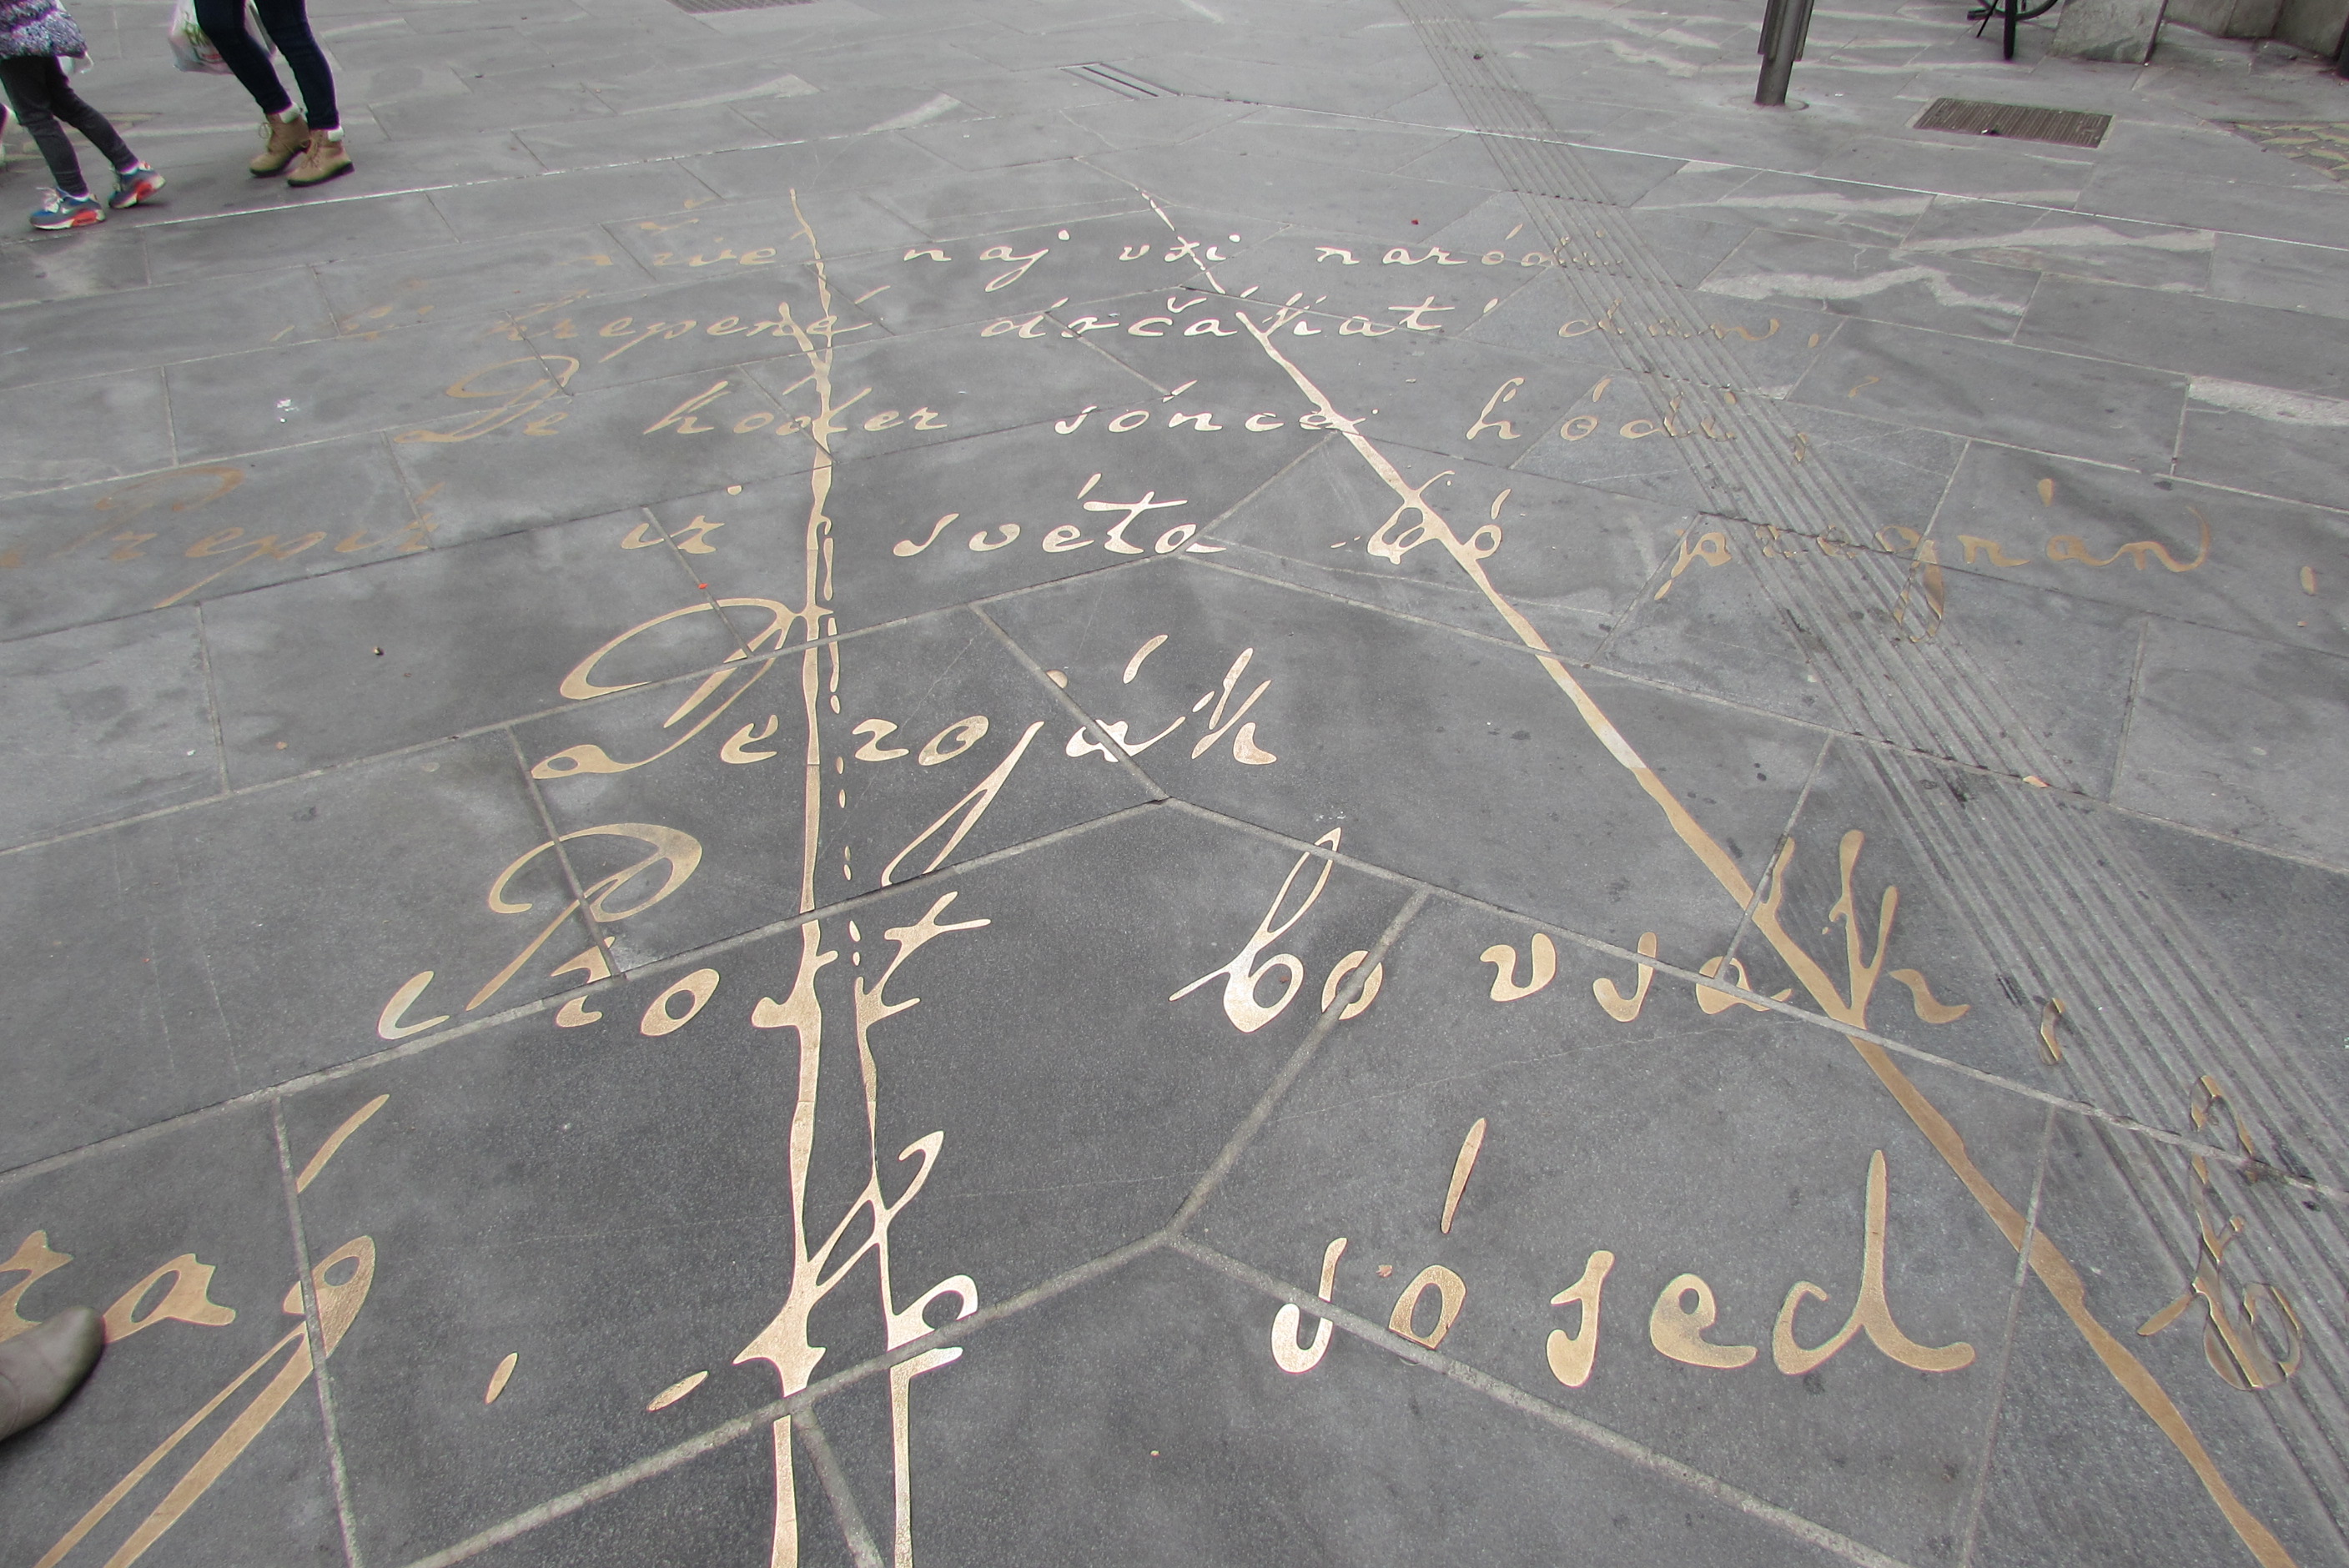 Živé naj vsi naródi,
Ki hrepené dočákat' dan,
De kóder sónce hódi,
Prepir iz svéta bó pregnán,
De roják
Prost bo vsak,
rág, le sósed bo